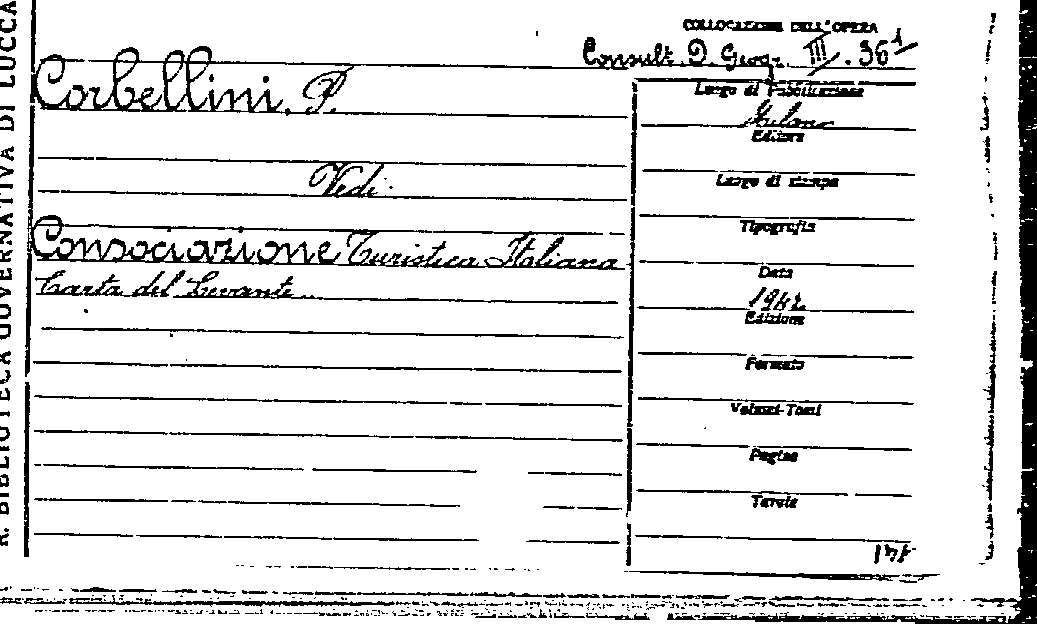 R. BIBLIOTECA GOVERNATIVA DI LUCCA
COLLOCAZIONE DELL'OPERA
Consult. D. Geogr. III. 36¹
Corbellini, P.
Vedi:
Consociazione Turistica Italiana
Carta del Levante
Luogo di Pubblicazione
Milano
Editore
Luogo di stampa
Tipografia
Data
1942
Edizione
Formato
Volumi-Tomi
Pagine
Tavole